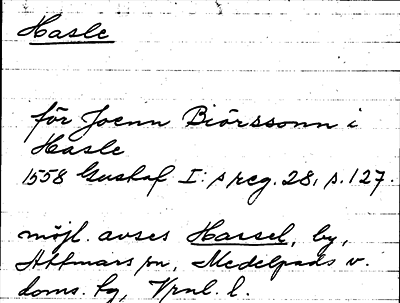 Hasle
för Joenn Biörssonn i
Hasle
1558 Gustaf I:s reg. 28, s. 127.
möjl. avses Hassel, by,
Attmars sn, Medelpads v.
doms. tg, Vrnl. l.